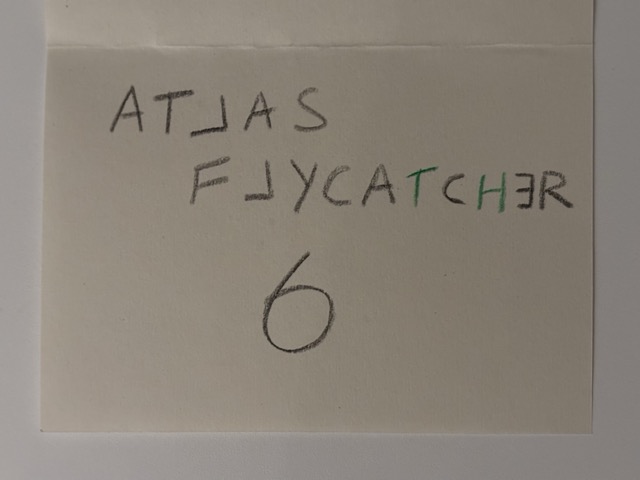 ATLAS
FLYCATCHER
6